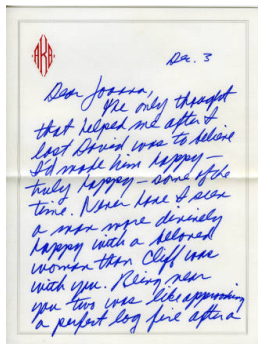 AKB
Dec. 3
Dear Joanna,
The only thought
that helped me after I
lost David was to believe
I'd made him happy—
truly happy—some of the
time. Never have I seen
a man more divinely
happy with a beloved
woman than Cliff was
with you. Being near
you two was like approaching
a perfect log fire after a